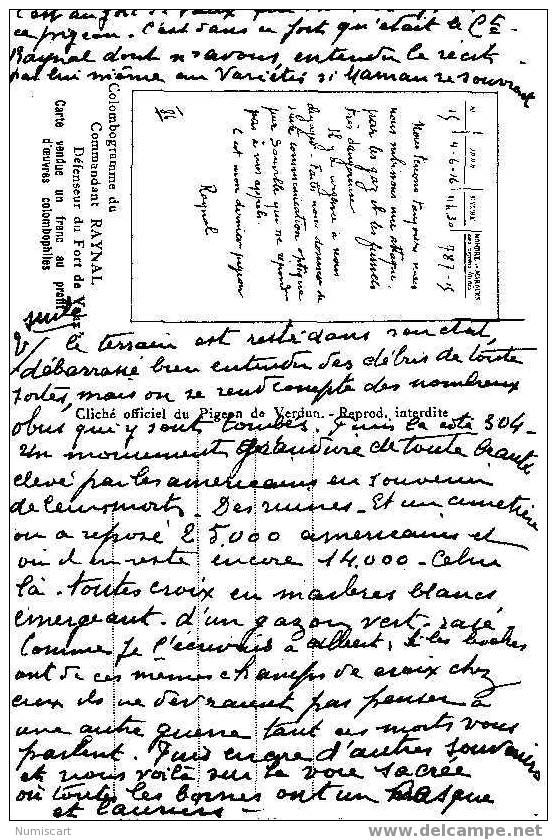 C'est au fort de Vaux que
ce pigeon. C'est dans ce fort qu'était le Ct
Raynal dont ns avons entendu le récit
par lui même au Variétés si Maman se souvient
Colombogramme du
Commandant RAYNAL
Défenseur du Fort de Vaux
Carte vendue un franc au profit
d'œuvres colombophiles
JOUR
HEURE
4-6-16 11h30 787-15
Nous tenons toujours mais
nous subissons une attaque
par les gaz et les fumées
très dangereuse
Il y a urgence à nous
dégager. Faites nous donner de
suite communication optique
par Souville qui ne répond
pas à nos appels
C'est mon dernier pigeon
Raynal
suite
V/ le terrain est resté dans son état,
débarrassé bien entendu des débris de toute
sortes, mais on se rend compte des nombreux
Cliché officiel du Pigeon de Verdun. - Reprod. interdite
obus qui y sont tombés. Puis la côte 304 -
Un monument grandiose de toute beauté
élevé par les américains en souvenir
de leurs morts. Des ruines. Et un cimetière
où a reposé 25,000 américains et
où il en reste encore 14.000 - Celui
là. toutes croix en marbres blancs
émergeant d'un gazon vert rasé.
Comme je l'écrivais à Albert, si les boches
ont de ces mêmes champs de croix chez
eux ils ne devraient pas penser à
une autre guerre tant ces morts vous
parlent. Puis encore d'autres souvenirs
et nous voilà sur la voie sacrée
où toutes les bornes ont un casque
et lauriers -
Numiscart
www.delcampe.net